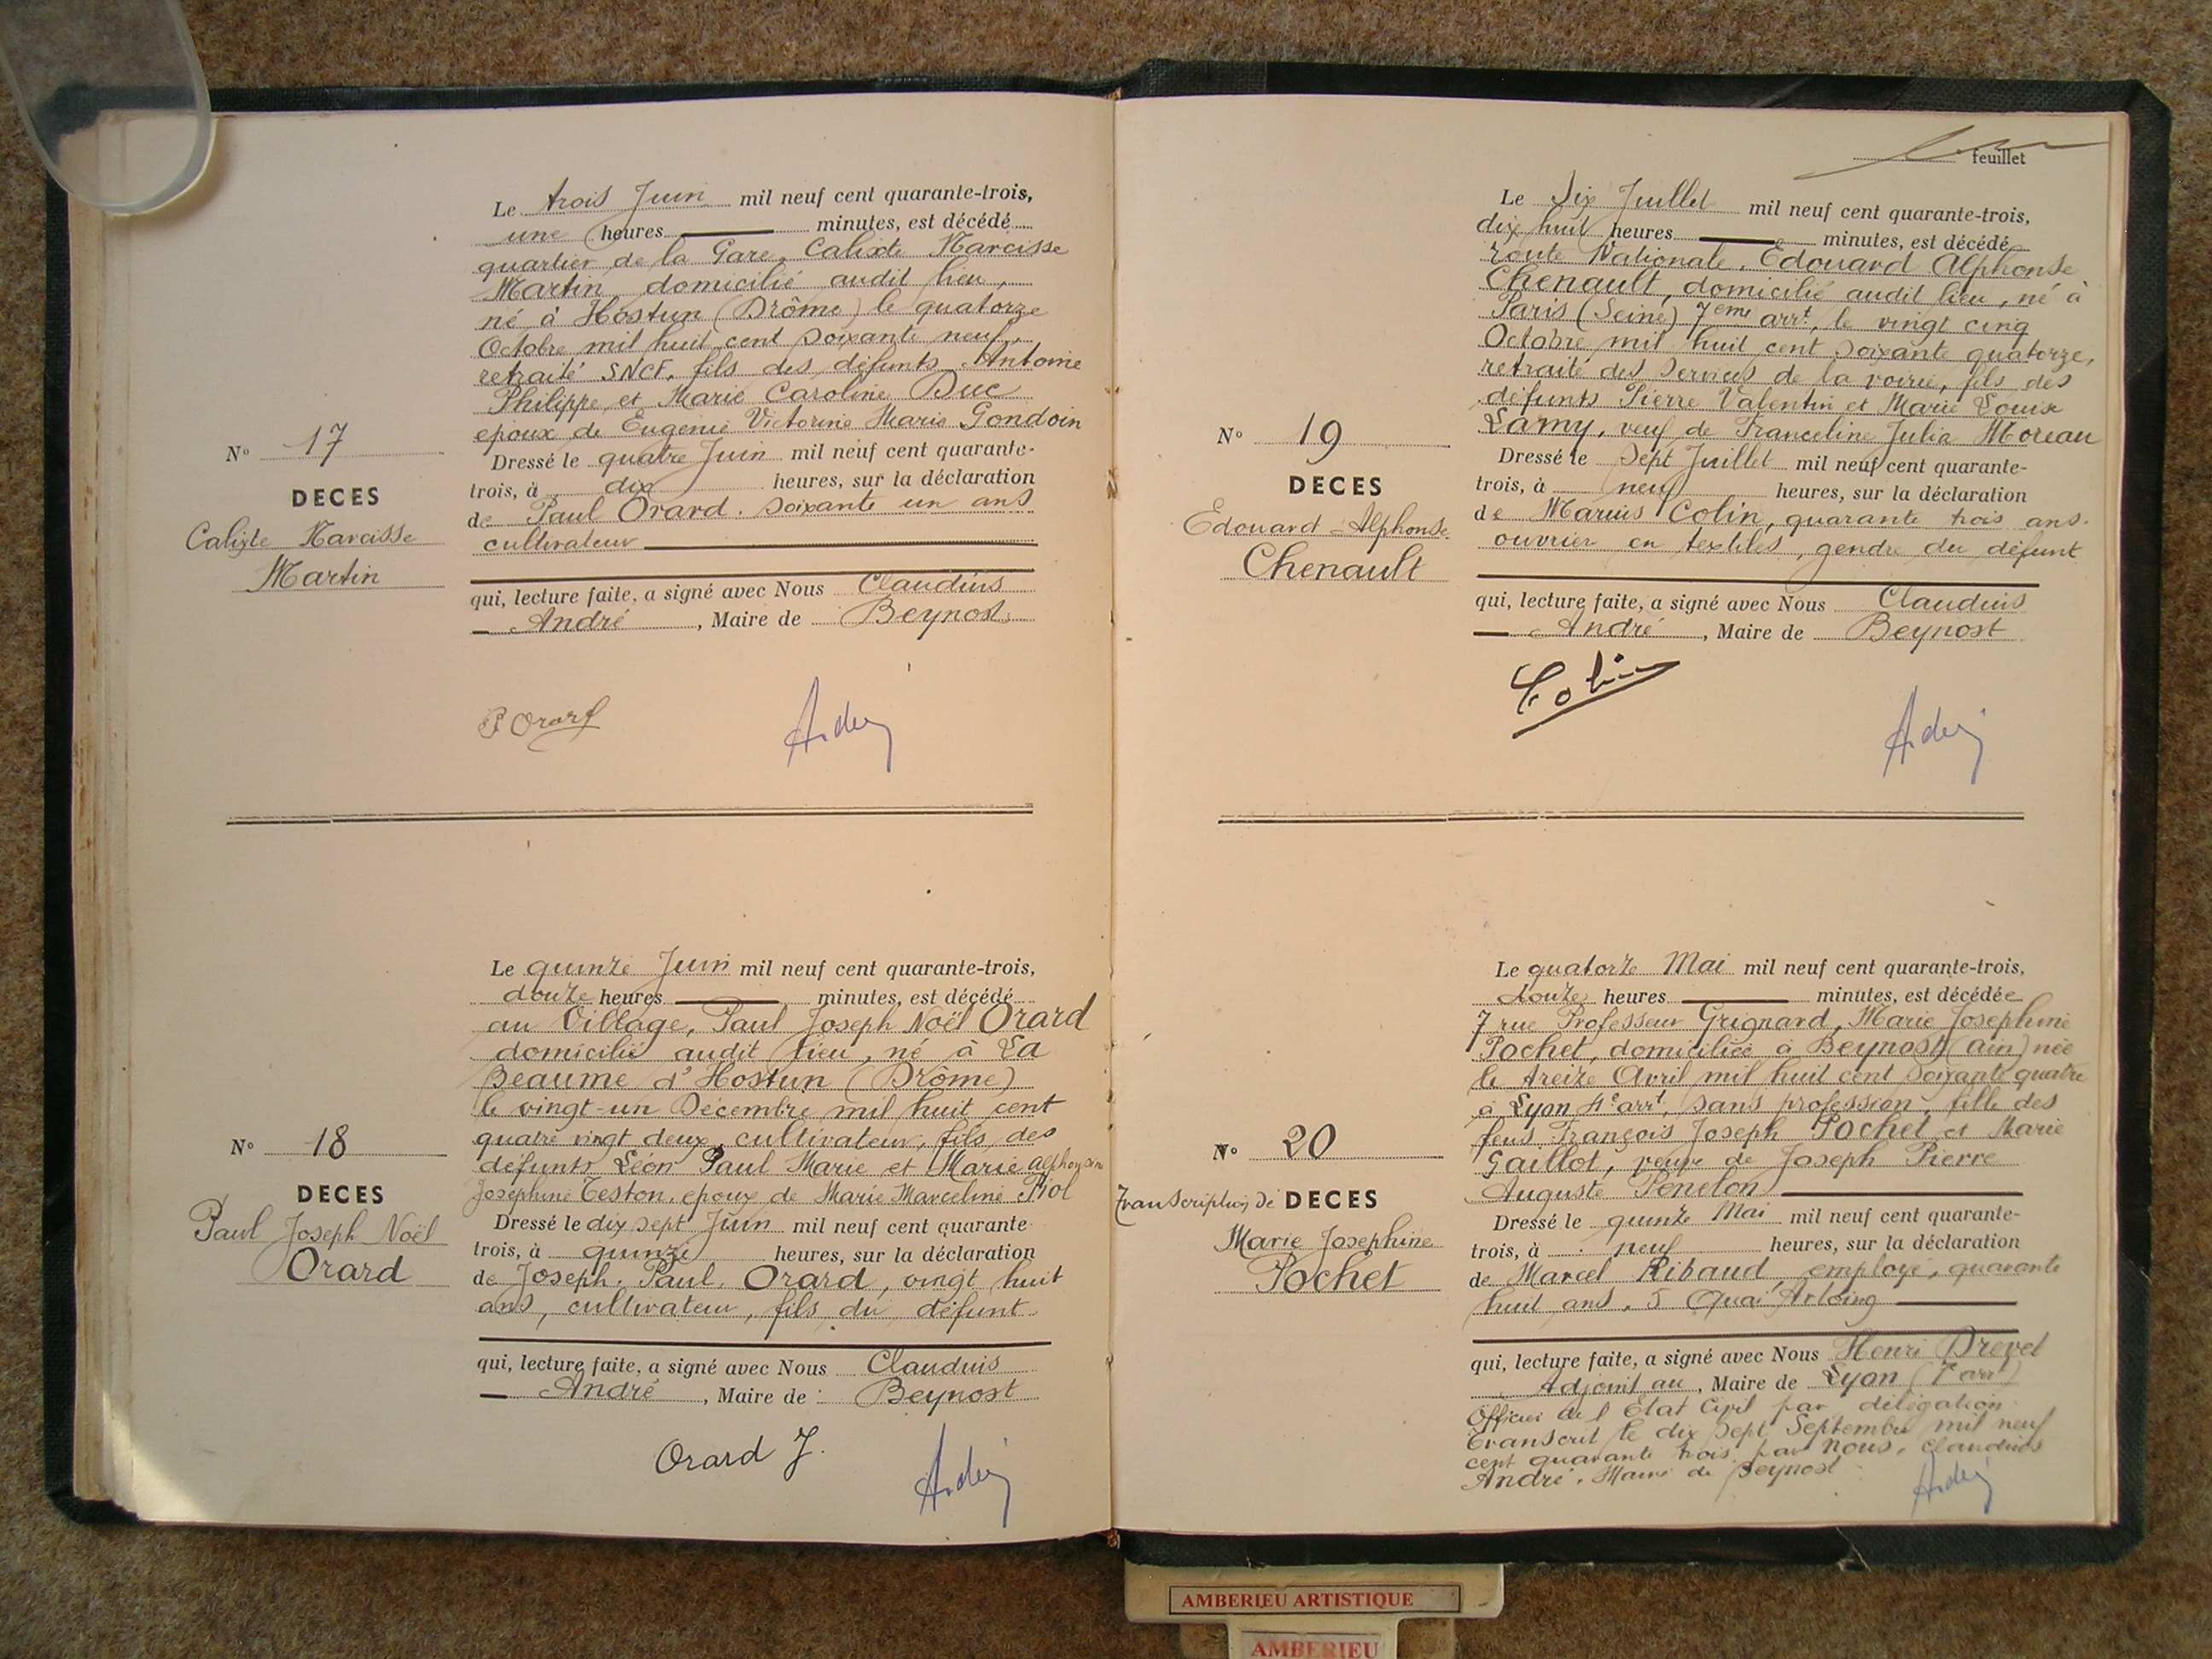 Le trois Juin mil neuf cent quarante-trois,
une heures minutes, est décédé
quartier de la Gare, Calixte Narcisse
Martin, domicilié audit lieu,
né à Hostun (Drôme) le quatorze
Octobre mil huit cent soixante neuf,
retraité SNCF, fils des défunts Antoine
Philippe et Marie Caroline Duc
époux de Eugénie Victorine Marie Gondoin
Dressé le quatre Juin mil neuf cent quarante-
trois, à dix heures, sur la déclaration
de Paul Orard. soixante un ans
cultivateur
qui, lecture faite, a signé avec Nous Claudius
André, Maire de Beynost
N° 17
DECES
Calixte Narcisse
Martin
P Orard
André
Le quinze Juin mil neuf cent quarante-trois,
douze heures minutes, est décédé
au Village, Paul Joseph Noël Orard
domicilié audit lieu, né à La
Beaume d'Hostun (Drôme)
le vingt-un Décembre mil huit cent
quatre vingt deux, cultivateur, fils des
défunts Léon Paul Marie et Marie Alphonsine
Joséphine Teston, époux de Marie Marceline Riol
Dressé le dix sept Juin mil neuf cent quarante
trois, à quinze heures, sur la déclaration
de Joseph. Paul. Orard, vingt huit
ans, cultivateur, fils du défunt
qui, lecture faite, a signé avec Nous Claudius
André, Maire de Beynost
N° 18
DECES
Paul Joseph Noël
Orard
Orard J.
André
feuillet
Le Six Juillet mil neuf cent quarante-trois,
dix huit heures minutes, est décédé
route Nationale, Edouard Alphonse
Chenault, domicilié audit lieu, né à
Paris (Seine) 7eme arrt, le vingt cinq
Octobre mil huit cent soixante quatorze,
retraité des services de la voirie, fils des
défunts Pierre Valentin et Marie Louise
Lamy, veuf de Franceline Julia Moreau
Dressé le Sept Juillet mil neuf cent quarante-
trois, à neuf heures, sur la déclaration
de Marius Colin, quarante trois ans.
ouvrier en textiles, gendre du défunt
qui, lecture faite, a signé avec Nous Claudius
André, Maire de Beynost
N° 19
DECES
Edouard Alphonse
Chenault
Colin
André
Le quatorze Mai mil neuf cent quarante-trois,
douze heures minutes, est décédée
7 rue Professeur Grignard, Marie Josephine
Pochet, domiciliée à Beynost (ain) née
le treize Avril mil huit cent soixante quatre
à Lyon 4e arrt, sans profession, fille des
feus François Joseph Pochet et Marie
Gaillot, veuve de Joseph Pierre
Auguste Penelon
Dressé le quinze Mai mil neuf cent quarante-
trois, à neuf heures, sur la déclaration
de Marcel Ribaud, employé, quarante
huit ans, 5 Quai Arloing
qui, lecture faite, a signé avec Nous Henri Drevet
Adjoint au, Maire de Lyon (7 arrt)
Officier de l'Etat Civil par délégation
Transcrit le dix sept Septembre mil neuf
cent quarante trois par nous, Claudius
André, Maire de Beynost
N° 20
Transcription de DECES
Marie Josephine
Pochet
André
AMBERIEU ARTISTIQUE
AMBERIEU